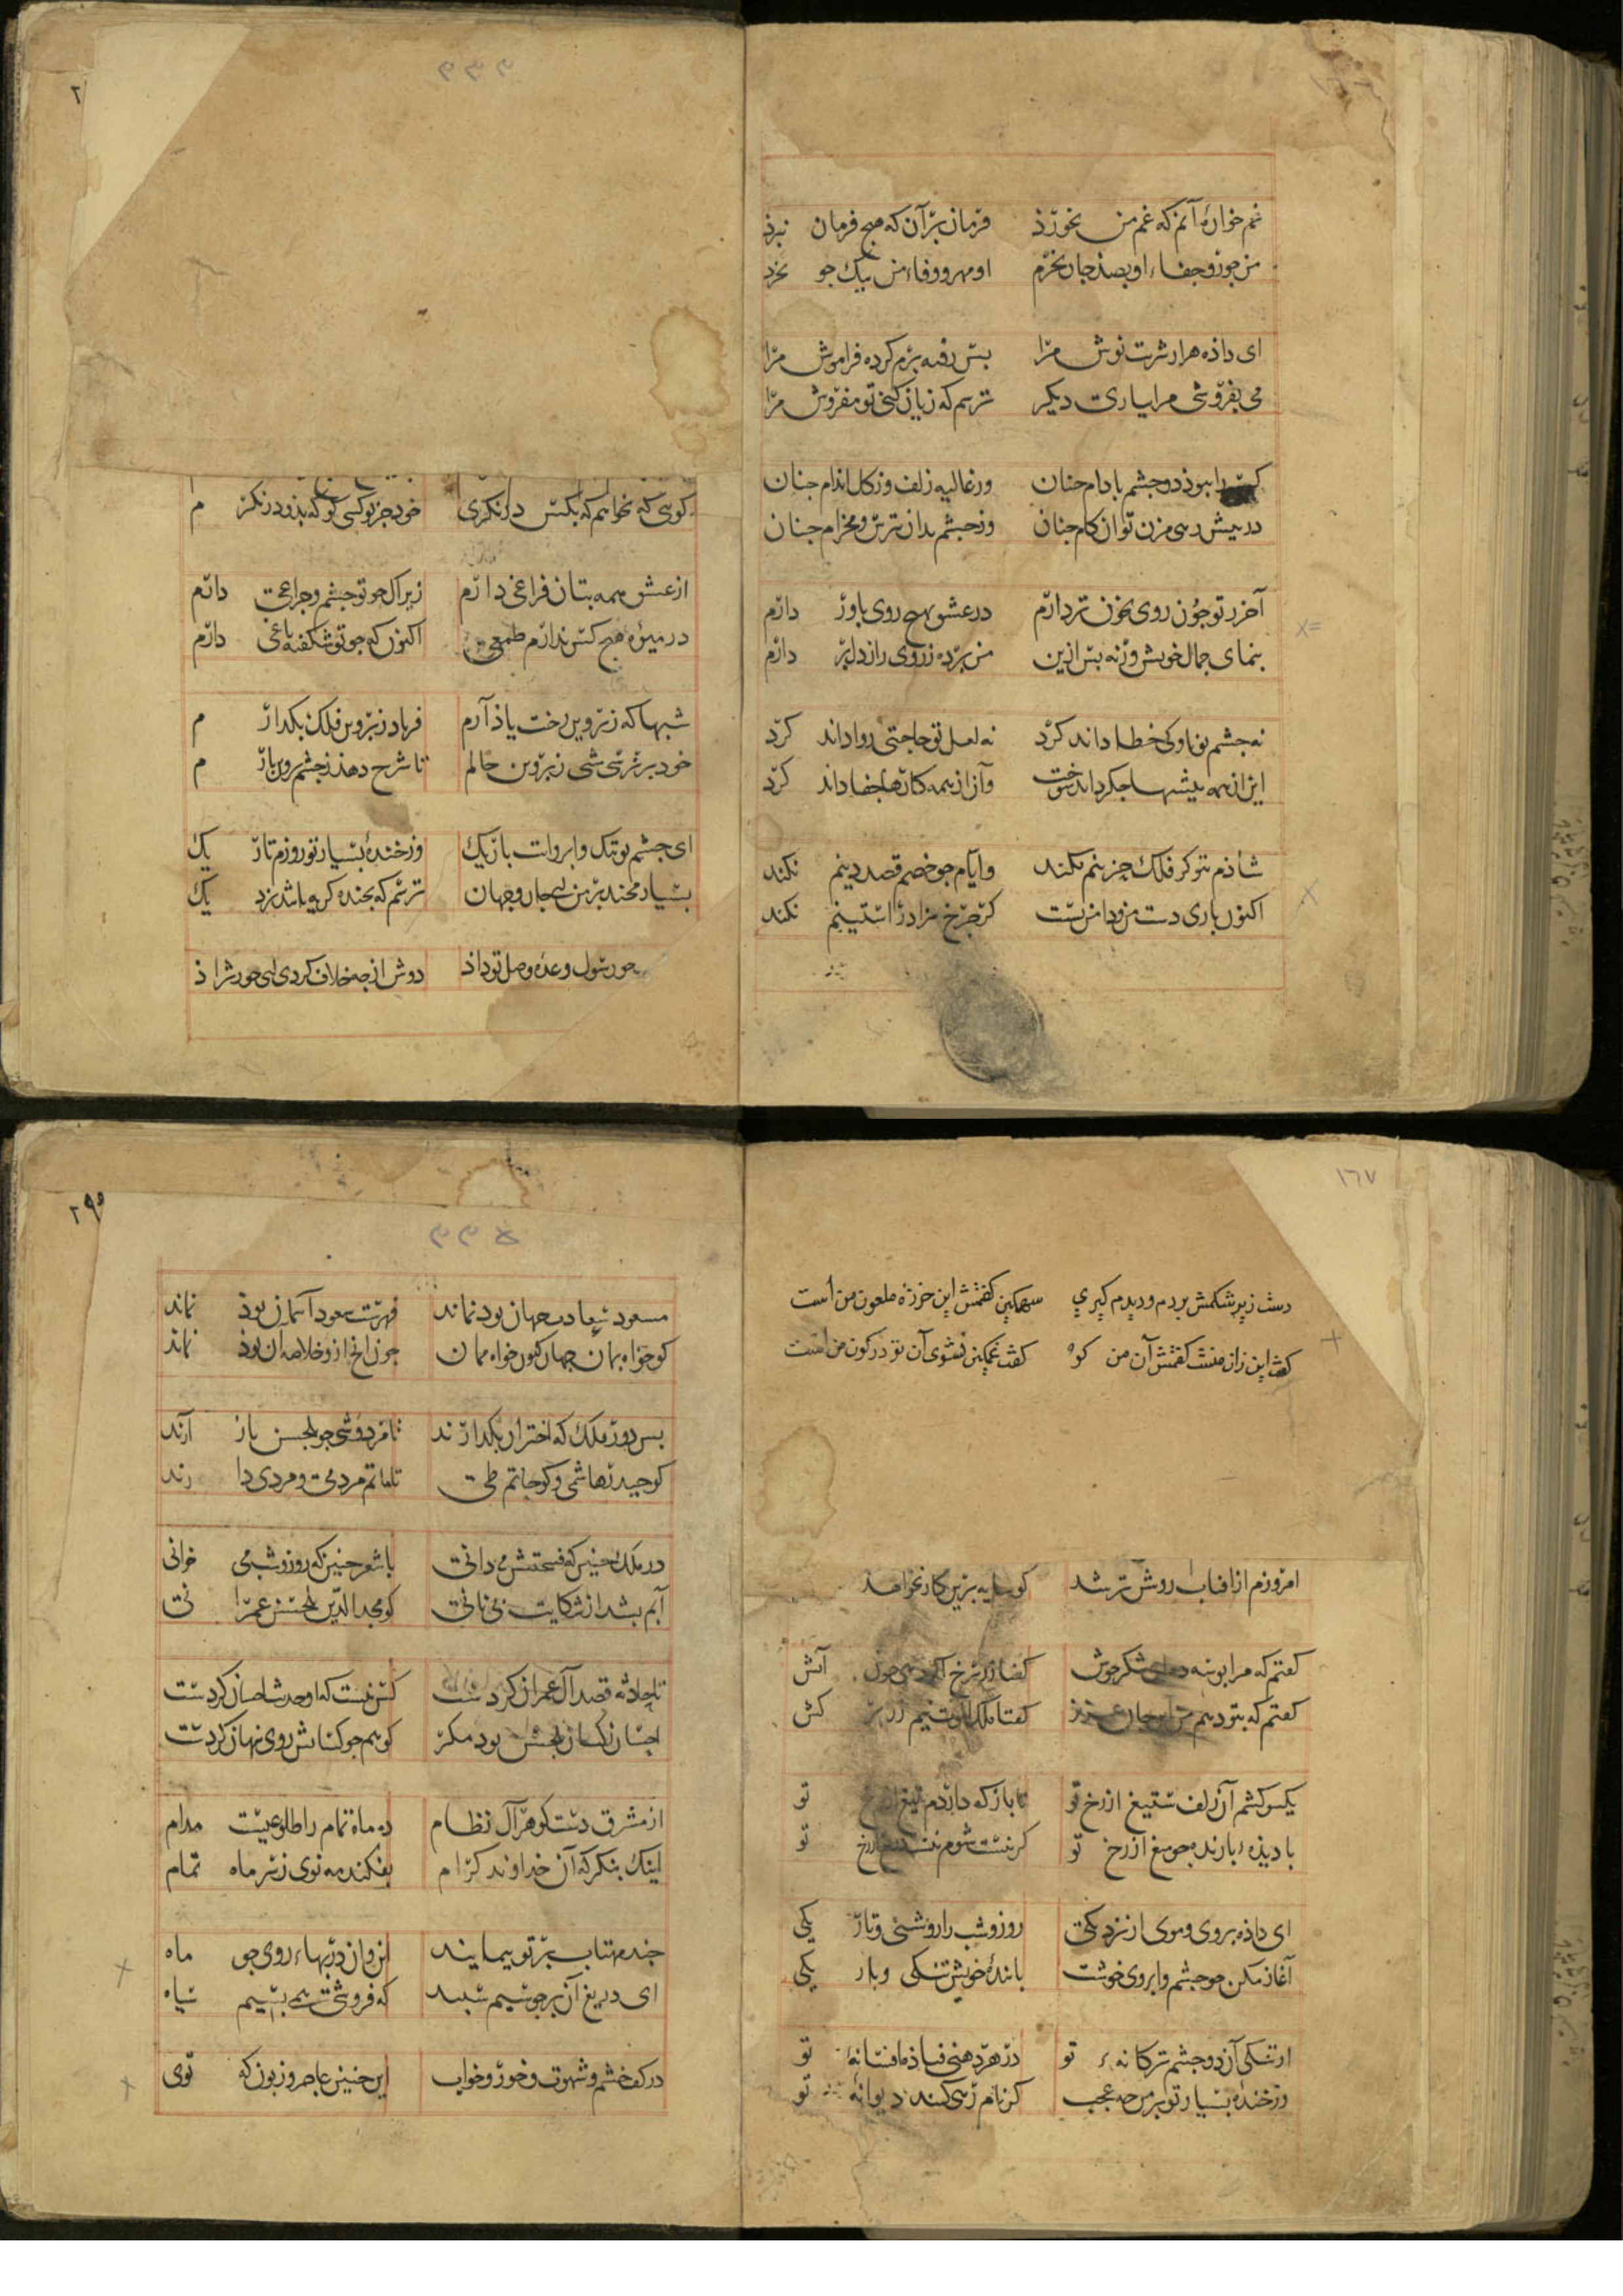 غم خوارهٔ آنم که غم من نخورذ فرمان بر آن که هیچ فرمان نبرذ
من جور و جفاء او بصذ جان بخرم او مهر و وفاء من بیک جو نخرد
ای داذه هزار شربت نوش مرا بس رفته برم کرده فراموش مرا
می بفروشی مرا بیاری دیکر ترسم که زیان کنی تو مفروش مرا
کس را نبوذ دو جشم باذام جنان وز غالیه زلف و ز کل اندام جنان
در بیش وز جشم بدان ترس و مخرام جنان
آخر ز تو جون روی بخون تر دارم در عشق بهیچ روی باور دارم
بنمای جمال خویش ورنه بس ازین من برده ز روی راز دل بر دارم
نه جشم تو ناوکی خطا داند کرد نه لعل تو حاجتی روا داند کرد
این از همه بیشها جکر داند سوخت وآن از همه کارها جفا داند کرد
شاذم بتو کر فلک حزینم نکند وایام جو خصم قصد دینم نکند
اکنون باری دست من و دامن تست کر جرخ سزا در آستینم نکند
۲
کویی که نخواهم که بکس درنکری خود جز تو کسی کو که بذو درنکرم
از عشق همه بتان فراغی دارم زیرا که جو تو جشم و جراغی دارم
در میوهٔ هیچ کس ندارم طمعی اکنون که جو تو شکفته باغی دارم
شبها که ز پروین رخت یاذ آرم فریاد ز پروین فلک بکذارم
خود بر شی ز پروین حالم تا شرح دهذ ز جشم پروین بارم
ای جشم تو تنک و ابروات باریک وز خندهٔ بسیار تو روزم تاریک
بسیار مخند بر من ای جان و جهان ترسم که بخنده کریه باشد نزدیک
جو رسول وعدهٔ وصل تو داذ دوش از جه خلاف کردی ای حورنژاذ
۱٦٧
دست زیر شکمش بردم و دیدم کیری سهمکین کفتمش این خرزهٔ ملعون من است
کفت این زان منست کفتمش آن من کو کفت غمکین نشوی آن تو در کون من است
امروزم از آفتاب روشن تر شد کو سایه برین کار نخواهد
کفتم که مرا بوسه ده ای شکر خوش کفتا آتش
کفتم که بتو دهم من این جان عزیز کفتا کش
یکسو کشم آن زلف ستیغ از رخ تو تا باز که دارذم تیغ از رخ تو
با دیذهٔ بارنده جو میغ از رخ تو کر نیست شوم رخ تو
ای داذه بروی و موی از نزدیکی روز و شب را روشنی و تاریکی
آغاز مکن جو جشم و ابروی خوشت با بندهٔ خویش تنکی و باریکی
از تنکی آن دو جشم ترکانهٔ تو در هر دهنی فتاذه افسانهٔ تو
وز خندهٔ بسیار تو بر من جه عجب کر نام زهی کند دیوانهٔ تو
۲۹۵
مسعود سعادت جهان بود نماند فهرست سعود آسمان بوذ نماند
کو خواه بمان جهان کنون خواه ممان جون از و خلاصه آن بوذ نماند
بس دور ملک که اختران بکذارند تا مردوشی جو بلحسن باز آرند
کو حیدر هاشمی و کو حاتم طی تا ماتم مردمی و مردی دارند
در ملک جنین که فسحتش می دانی با شعر جنین که روز و شب می خوانی
آبم بشد از شکایت بی نانی کو مجدالدین بلحسن عمرانی
تا حادثه قصد آل عمران کردست کس نیست که او حدیث احسان کردست
احسان ز کسان بلحسن بود مکر کو هم جو کسانش روی پنهان کردست
از مشرق دست کوهر آل نظام ده ماه تمام را طلوعیست مدام
اینک بنکر که آن خداوند کرام بفکند مه نوی ز هر ماه تمام
جند مهتاب بر تو بیمایند این و آن در بهاء روی جو ماه
ای دریغ آن بر جو سیم سبید که فروشی همی بسیم سیاه
در کف خشم و شهوت و خور و خواب این جنین عاجز و زبون که توی